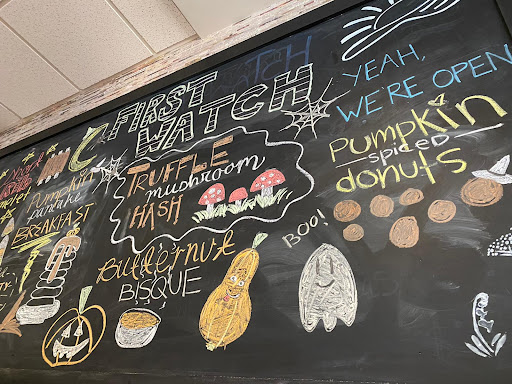 FIRST
WATCH
YEAH,
WE'RE OPEN
TRUFFLE
mushroom
HASH
Pumpkin
spiced
donuts
Pumpkin
pancake
BREAKFAST
Butternut
BISQUE
BOO!